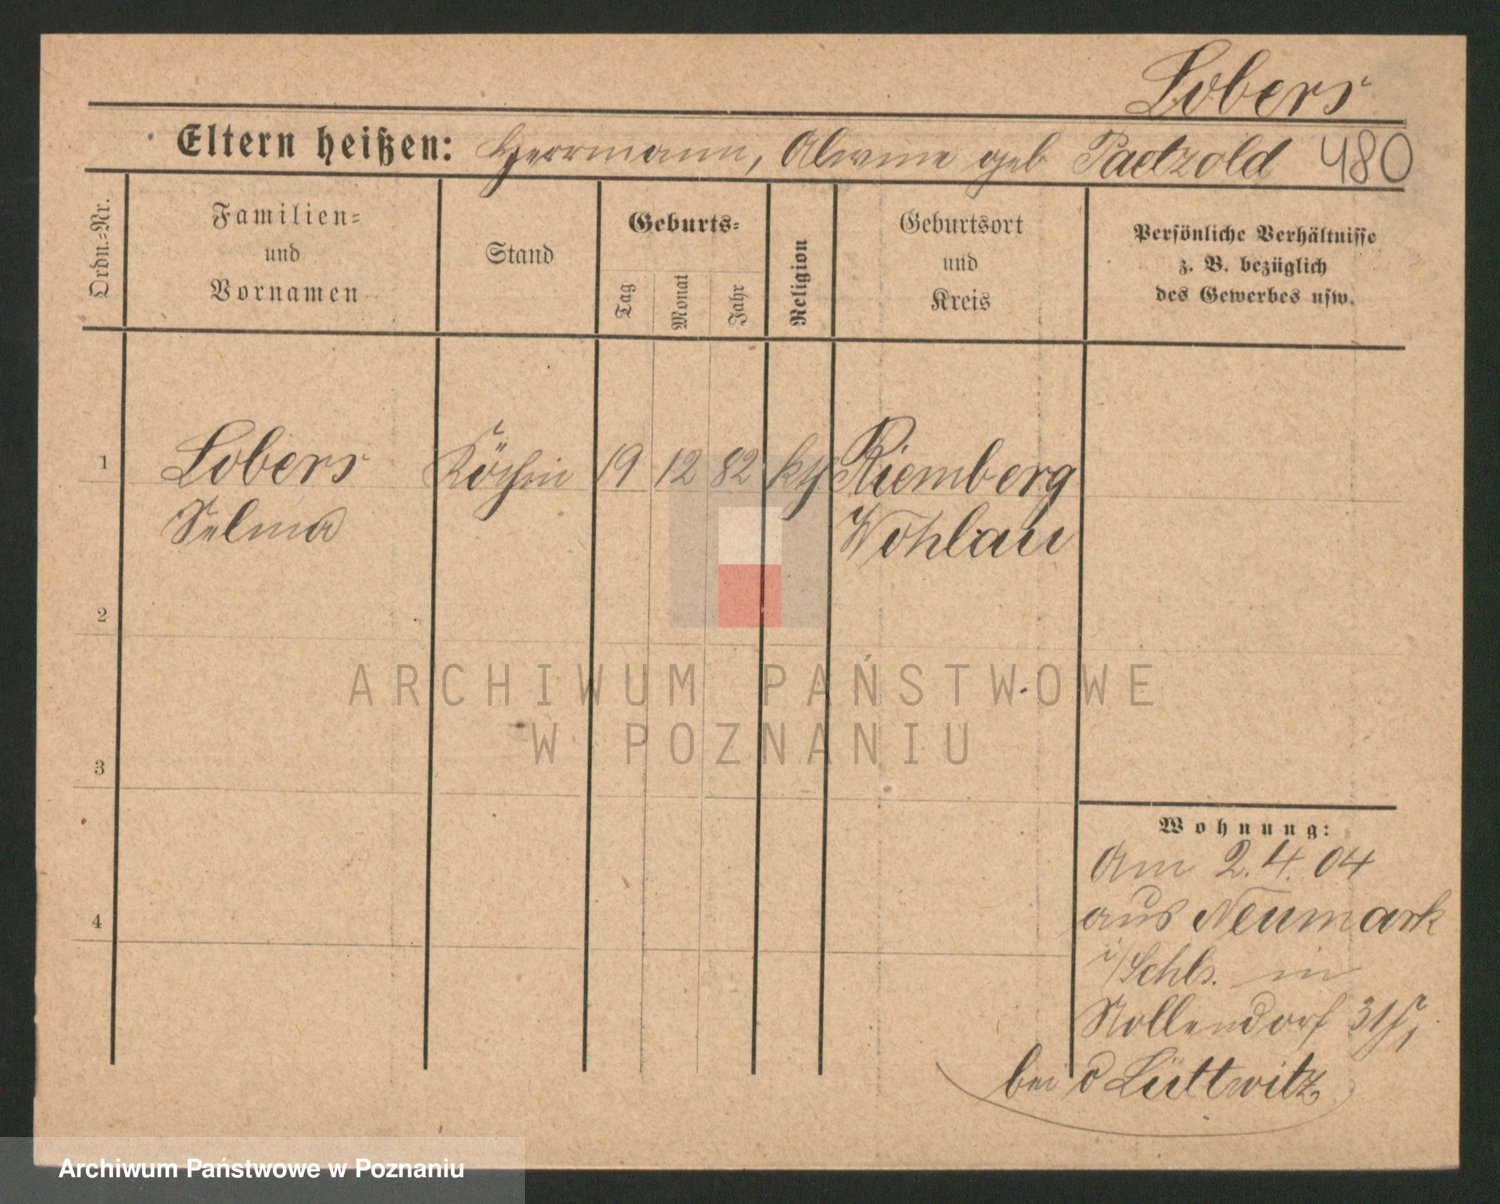 Lobers
Eltern heißen: Herrmann, Alwine geb Paetzold 480
Ordn.-Nr.
Familien-
und
Vornamen
Stand
Geburts-
Tag
Monat
Jahr
Religion
Geburtsort
und
Kreis
Persönliche Verhältnisse
z. B. bezüglich
des Gewerbes usw.
1 Lobers Köchin 19 12 82 kth Riemberg
Selma Wohlau
2
3
4
ARCHIWUM PAŃSTWOWE
W POZNANIU
Wohnung:
Am 2.4.04
aus Neumark
i/Schls. in
Nollendorf 31
bei v Lüttwitz
Archiwum Państwowe w Poznaniu